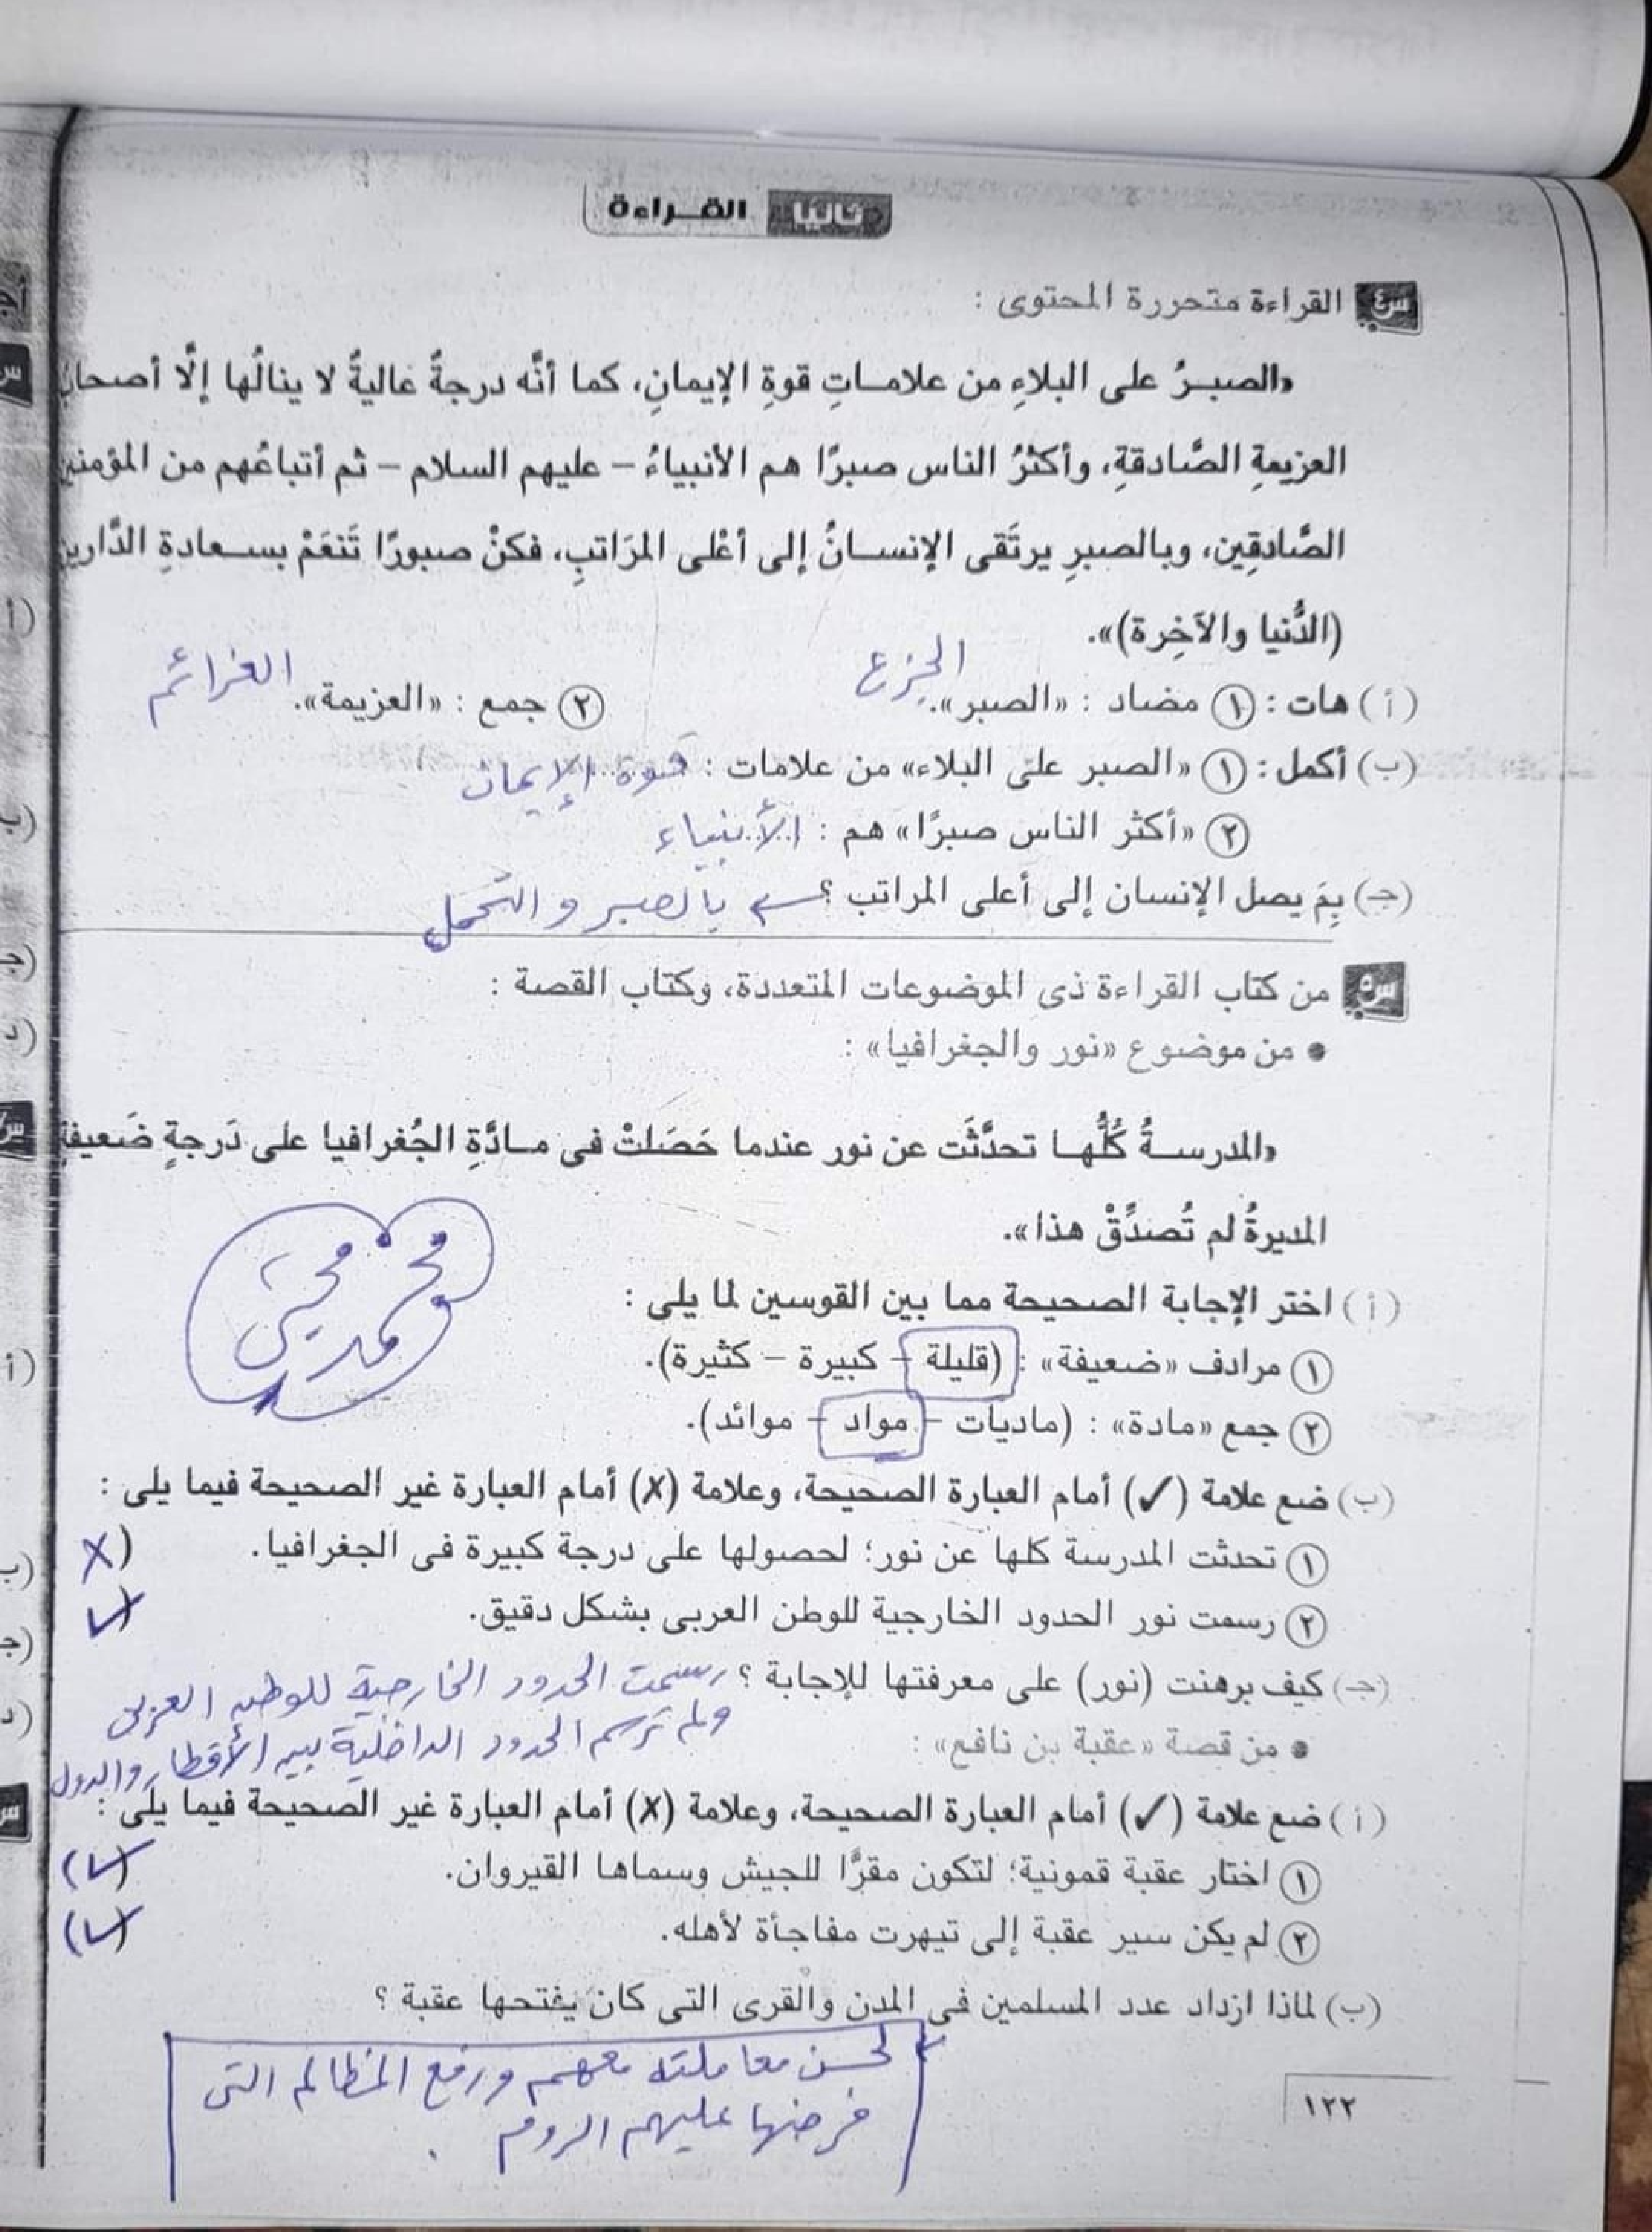 ثانيا القراءة
س٤ القراءة متحررة المحتوى :
«الصبرُ على البلاءِ من علاماتِ قوةِ الإيمانِ، كما أنَّه درجةٌ عاليةٌ لا ينالُها إلَّا أصحابُ
العزيمةِ الصَّادقةِ، وأكثرُ الناس صبرًا هم الأنبياءُ – عليهم السلام – ثم أتباعُهم من المؤمنين
الصَّادقِين، وبالصبرِ يرتَقى الإنسانُ إلى أعْلى المرَاتبِ، فكنْ صبورًا تَنعَمْ بسعادةِ الدَّارين
(الدُّنيا والآخِرة)».
(أ) هات : ١ مضاد : «الصبر». الجزع ٢ جمع : «العزيمة». العزائم
(ب) أكمل : ١ «الصبر على البلاء» من علامات : قوة الإيمان
٢ «أكثر الناس صبرًا» هم : الأنبياء
(جـ) بِمَ يصل الإنسان إلى أعلى المراتب ؟ بالصبر والتحمل
س٥ من كتاب القراءة ذى الموضوعات المتعددة، وكتاب القصة :
• من موضوع «نور والجغرافيا» :
«المدرسةُ كُلُّها تحدَّثَت عن نور عندما حَصَلتْ فى مادَّةِ الجُغرافيا على دَرجةٍ ضَعيفةٍ
المديرةُ لم تُصدِّقْ هذا».
محمد محيى
(أ) اختر الإجابة الصحيحة مما بين القوسين لما يلى :
١ مرادف «ضعيفة» : (قليلة – كبيرة – كثيرة).
٢ جمع «مادة» : (ماديات – مواد – موائد).
(ب) ضع علامة (✓) أمام العبارة الصحيحة، وعلامة (✗) أمام العبارة غير الصحيحة فيما يلى :
١ تحدثت المدرسة كلها عن نور؛ لحصولها على درجة كبيرة فى الجغرافيا. (✗
٢ رسمت نور الحدود الخارجية للوطن العربى بشكل دقيق. (✓
(جـ) كيف برهنت (نور) على معرفتها للإجابة ؟ رسمت الحدود الخارجية للوطن العربى
ولم ترسم الحدود الداخلية بين الأقطار والدول
• من قصة «عقبة بن نافع» :
(أ) ضع علامة (✓) أمام العبارة الصحيحة، وعلامة (✗) أمام العبارة غير الصحيحة فيما يلى :
١ اختار عقبة قمونية؛ لتكون مقرًّا للجيش وسماها القيروان. (✓)
٢ لم يكن سير عقبة إلى تيهرت مفاجأة لأهله. (✓)
(ب) لماذا ازداد عدد المسلمين فى المدن والقرى التى كان يفتحها عقبة ؟
لحسن معاملته معهم ورفع المظالم التى
فرضها عليهم الروم .
١٢٢